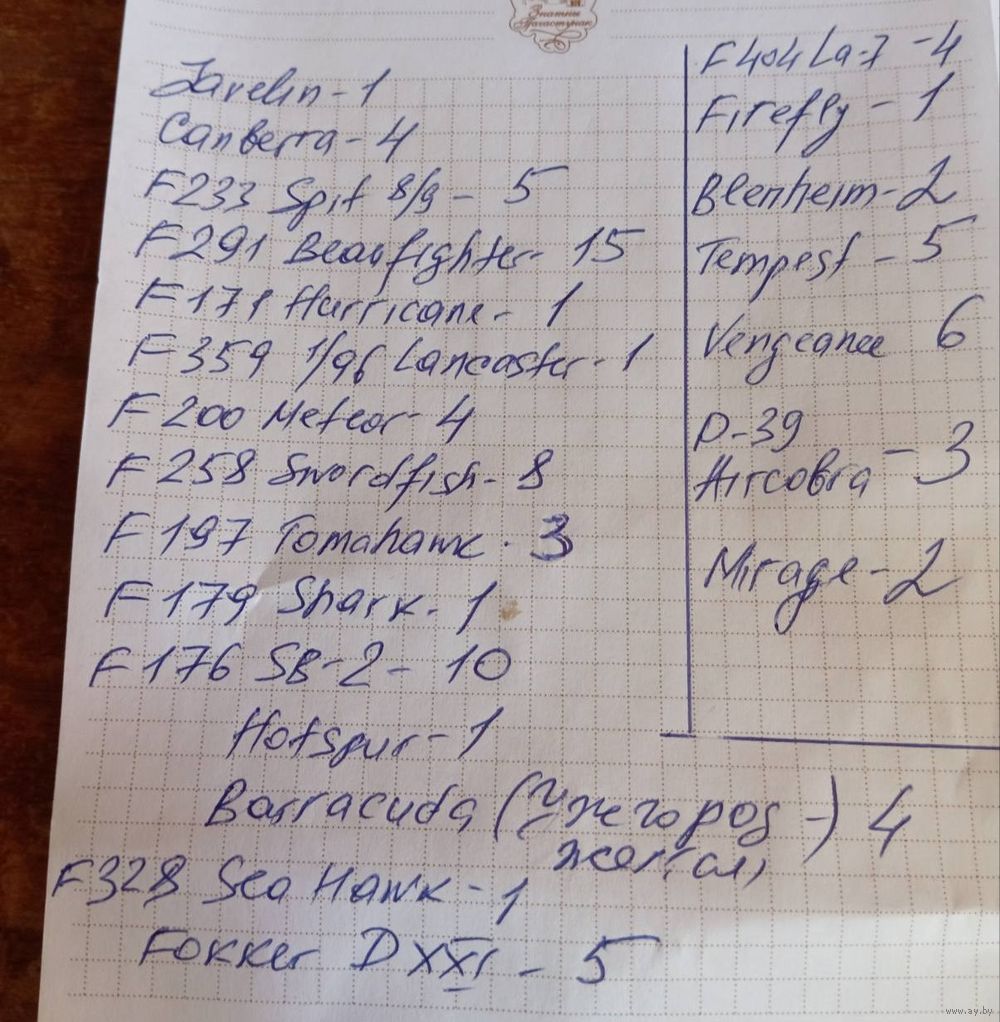 Знатны Рагаступнік
Javelin - 1
Canberra - 4
F233 Spit 8/9 - 5
F291 Beaufighter - 15
F171 Hurricane - 1
F359 1/96 Lancaster - 1
F200 Meteor - 4
F258 Swordfish - 8
F197 Tomahawk - 3
F179 Shark - 1
F176 SB-2 - 10
Hotspur - 1
Barracuda (Ужгород -) 4
F328 Sea Hawk - 1
Fokker D XXI - 5
F404 La-7 - 4
Firefly - 1
Blenheim - 2
Tempest - 5
Vengeance 6
P-39
Aircobra - 3
Mirage - 2
www.ay.by